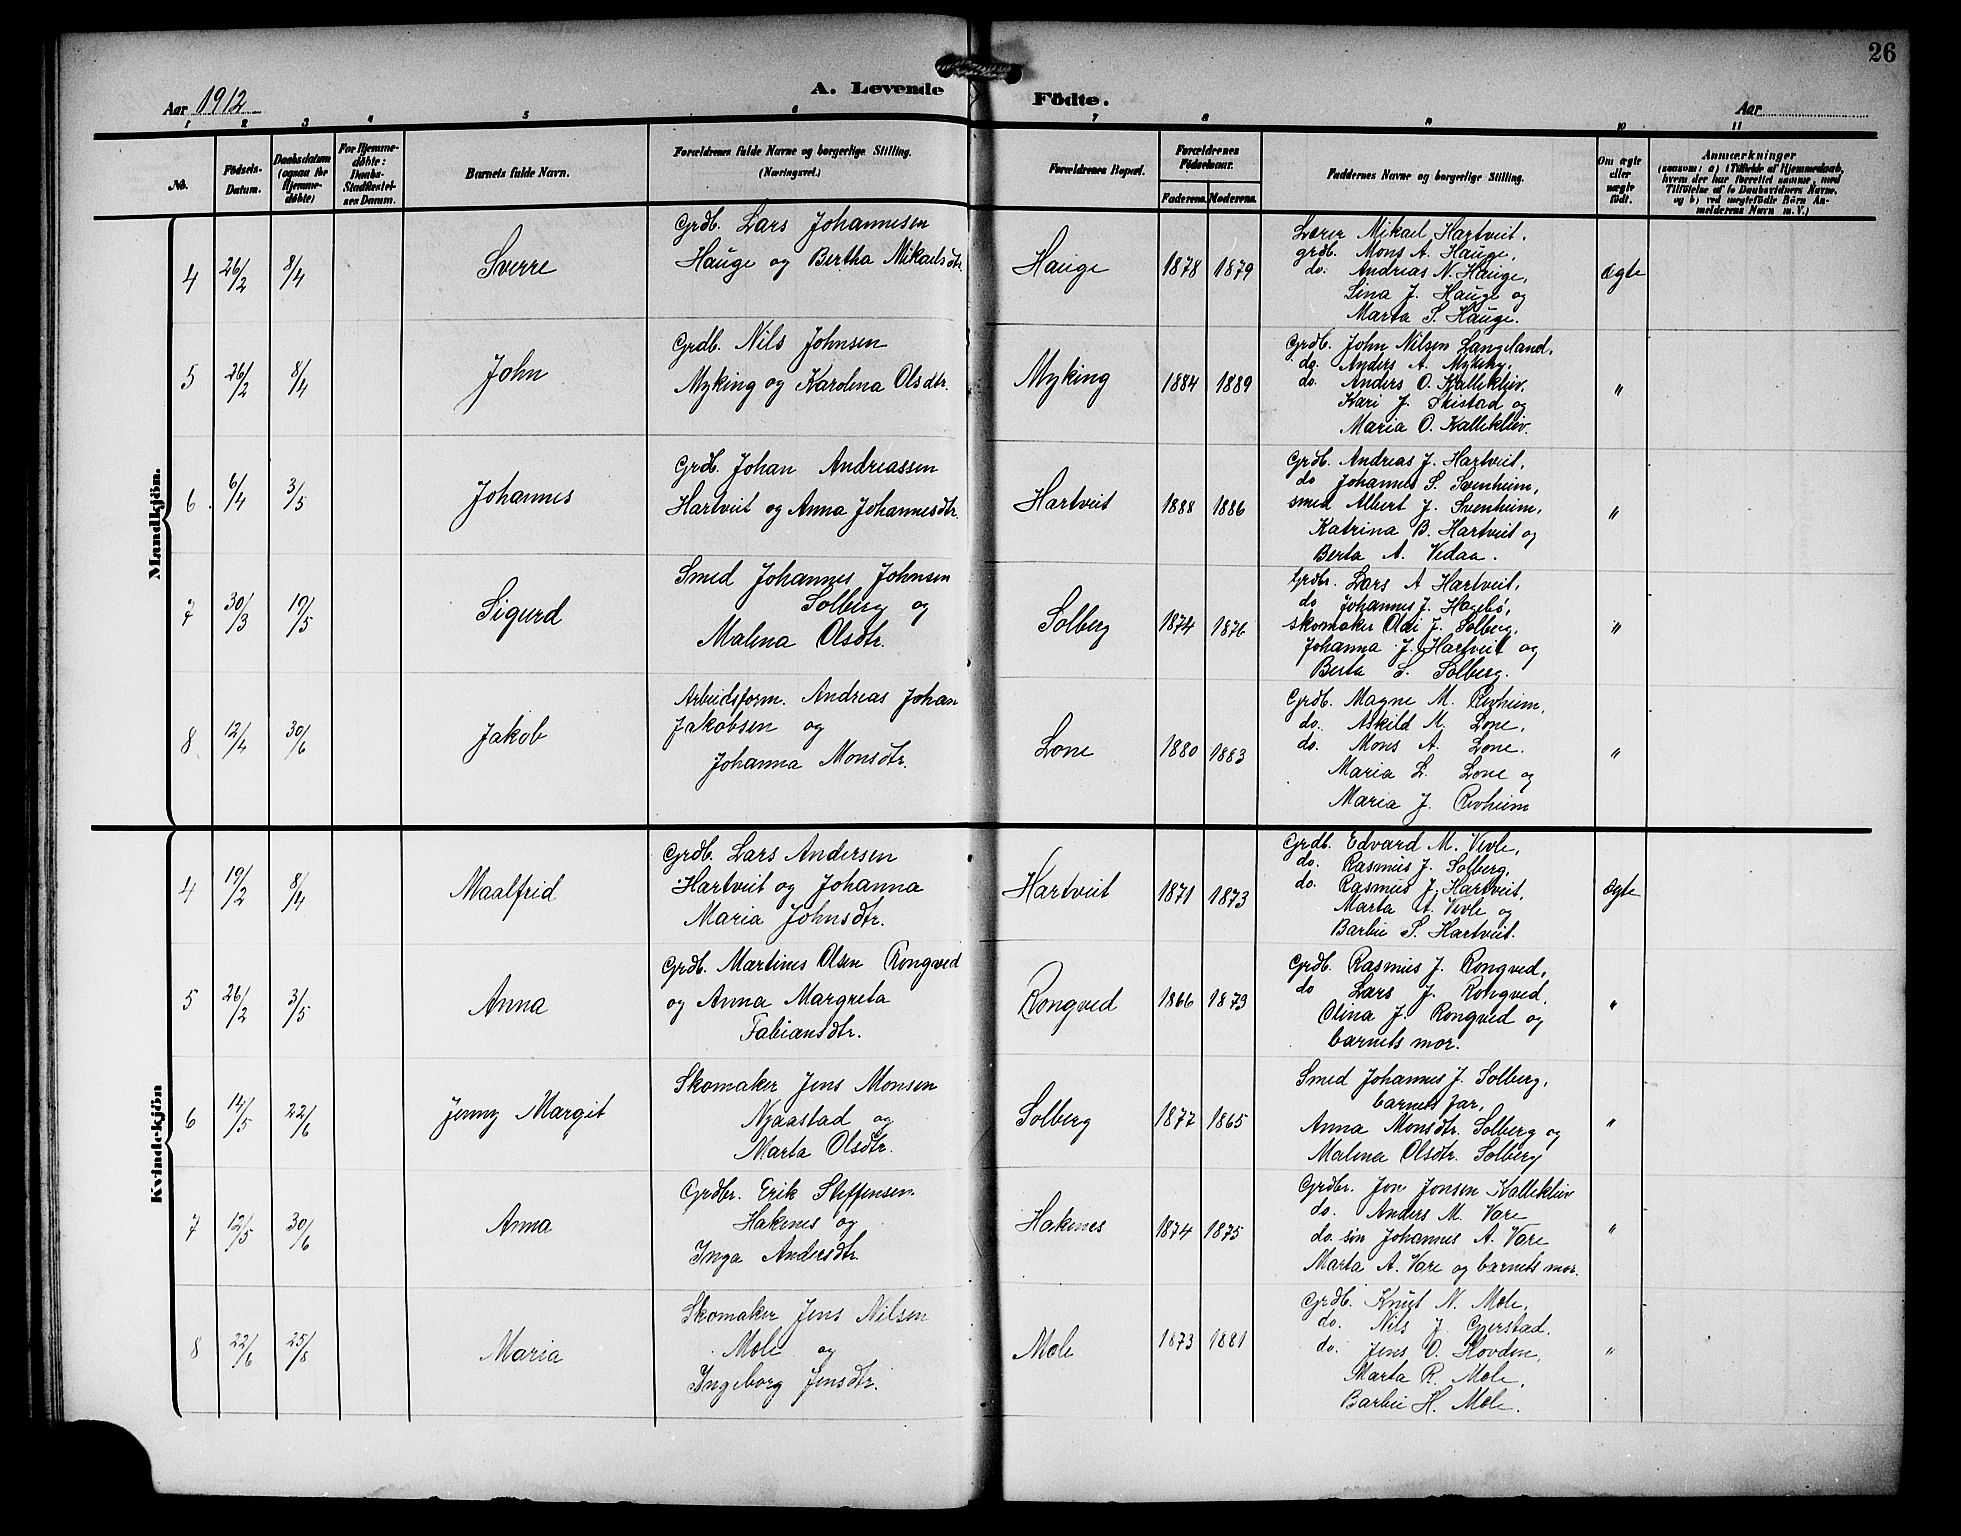 26
Aar 1912
A. Levende Födte.
Aar
1 2 3 4 5 6 7 8 9 10 11
No.
Födsels-Datum.
Daabsdatum (ogsaa for Hjemme-döbte)
For Hjemme-döbte: Daabs-Stadfæstel-ses Datum.
Barnets fulde Navn.
Forældrenes fulde Navne og borgerlige Stilling.
(Næringsvei.)
Forældrenes Bopæl.
Forældrenes Födselsaar.
Faderens. Moderens.
Faddernes Navne og borgerlige Stilling.
Om ægte eller uægte födt.
Anmærkninger
(saasom: a) i Tilfælde af Hjemmedaab,
hvem der har forrettet samme, med
Tilföielse af to Daabsvidners Navne,
og b) ved uægtefödte Börn An-
melderens Navn m. V.)
Mandkjön.
4 26/2 8/4 Sverre
Grdb. Lars Johannesen
Hauge og Bertha Mikaelsdtr.
Hauge 1878 1879
Lærer Mikael Hartveit,
grdb. Mons A. Hauge,
do. Andreas N. Hauge,
Lina J. Hauge og
Marta S. Hauge.
Ægte
5 26/2 8/4 John
Grdb. Nils Johnsen
Myking og Karolina Olsdtr.
Myking 1884 1889
Grdb. John Nilsen Langeland,
do. Anders A. Myking,
do. Anders O. Kalleklev.
Kari J. Skistad og
Maria O. Kalleklev.
"
6 6/4 3/5 Johannes
Grdb. Johan Andreassen
Hartveit og Anna Johannesdtr.
Hartveit 1888 1886
Grdb. Andreas J. Hartveit,
do Johannes S. Svenheim,
smed Albert J. Svenheim,
Katrina B. Hartveit og
Berta A. Vedaa.
"
7 30/3 19/5 Sigurd
Smed Johannes Johnsen
Solberg og
Malena Olsdtr.
Solberg 1874 1876
Grdbr. Lars A Hartveit,
do Johannes J. Hagebø,
skomaker Olai J. Solberg,
Johanna J. Hartveit og
Berta S. Solberg.
"
8 12/4 30/6 Jakob
Arbeidsform. Andreas Johan
Jakobsen og
Johanna Monsdtr.
Lone 1880 1883
Grdb. Magne M. Revheim,
do. Askild M. Lone,
do. Mons A. Lone.
Maria L. Lone og
Maria J. Revheim
"
Kvindekjön
4 19/2 8/4 Maalfrid
Grdb. Lars Andersen
Hartveit og Johanna
Maria Johnsdtr.
Hartveit 1871 1873
Grdb. Edvard M. Vevle,
do. Rasmus J. Solberg,
do. Rasmus J. Hartveit,
Marta A. Vevle og
Barbu S. Hartveit.
Ægte
5 26/2 3/5 Anna
Grdb. Martines Olsen Rongved
og Anna Margreta
Fabiansdtr.
Rongved 1866 1879
Grdb. Rasmus J. Rongved,
do Lars J. Rongved.
Olina J. Rongved og
barnets mor.
"
6 14/5 22/6 Jenny Margit
Skomaker Jens Monsen
Njaastad og
Marta Olsdtr.
Solberg 1877 1865
Smed Johannes J. Solberg,
barnets far,
Anna Monsdtr. Solberg og
Malena Olsdtr. Solberg
"
7 12/5 30/6 Anna
Grdbr. Erik Steffensen
Hakenes og
Inga Andersdtr.
Hakenes 1874 1875
Grdbr. Jon Jonsen Kalleklev
do. Anders M. Vare
do. søn Johannes A. Vare
Marta A. Vare og barnets mor.
"
8 22/6 25/8 Maria
Skomaker Jens Nilsen
Mæle og
Ingeborg Jensdtr.
Mæle 1873 1881
Grdb. Knut N. Mæle,
do. Nils J. Gjerstad.
do. Jens O. Hovden,
Marta R. Mæle,
Barbu H. Mæle.
"